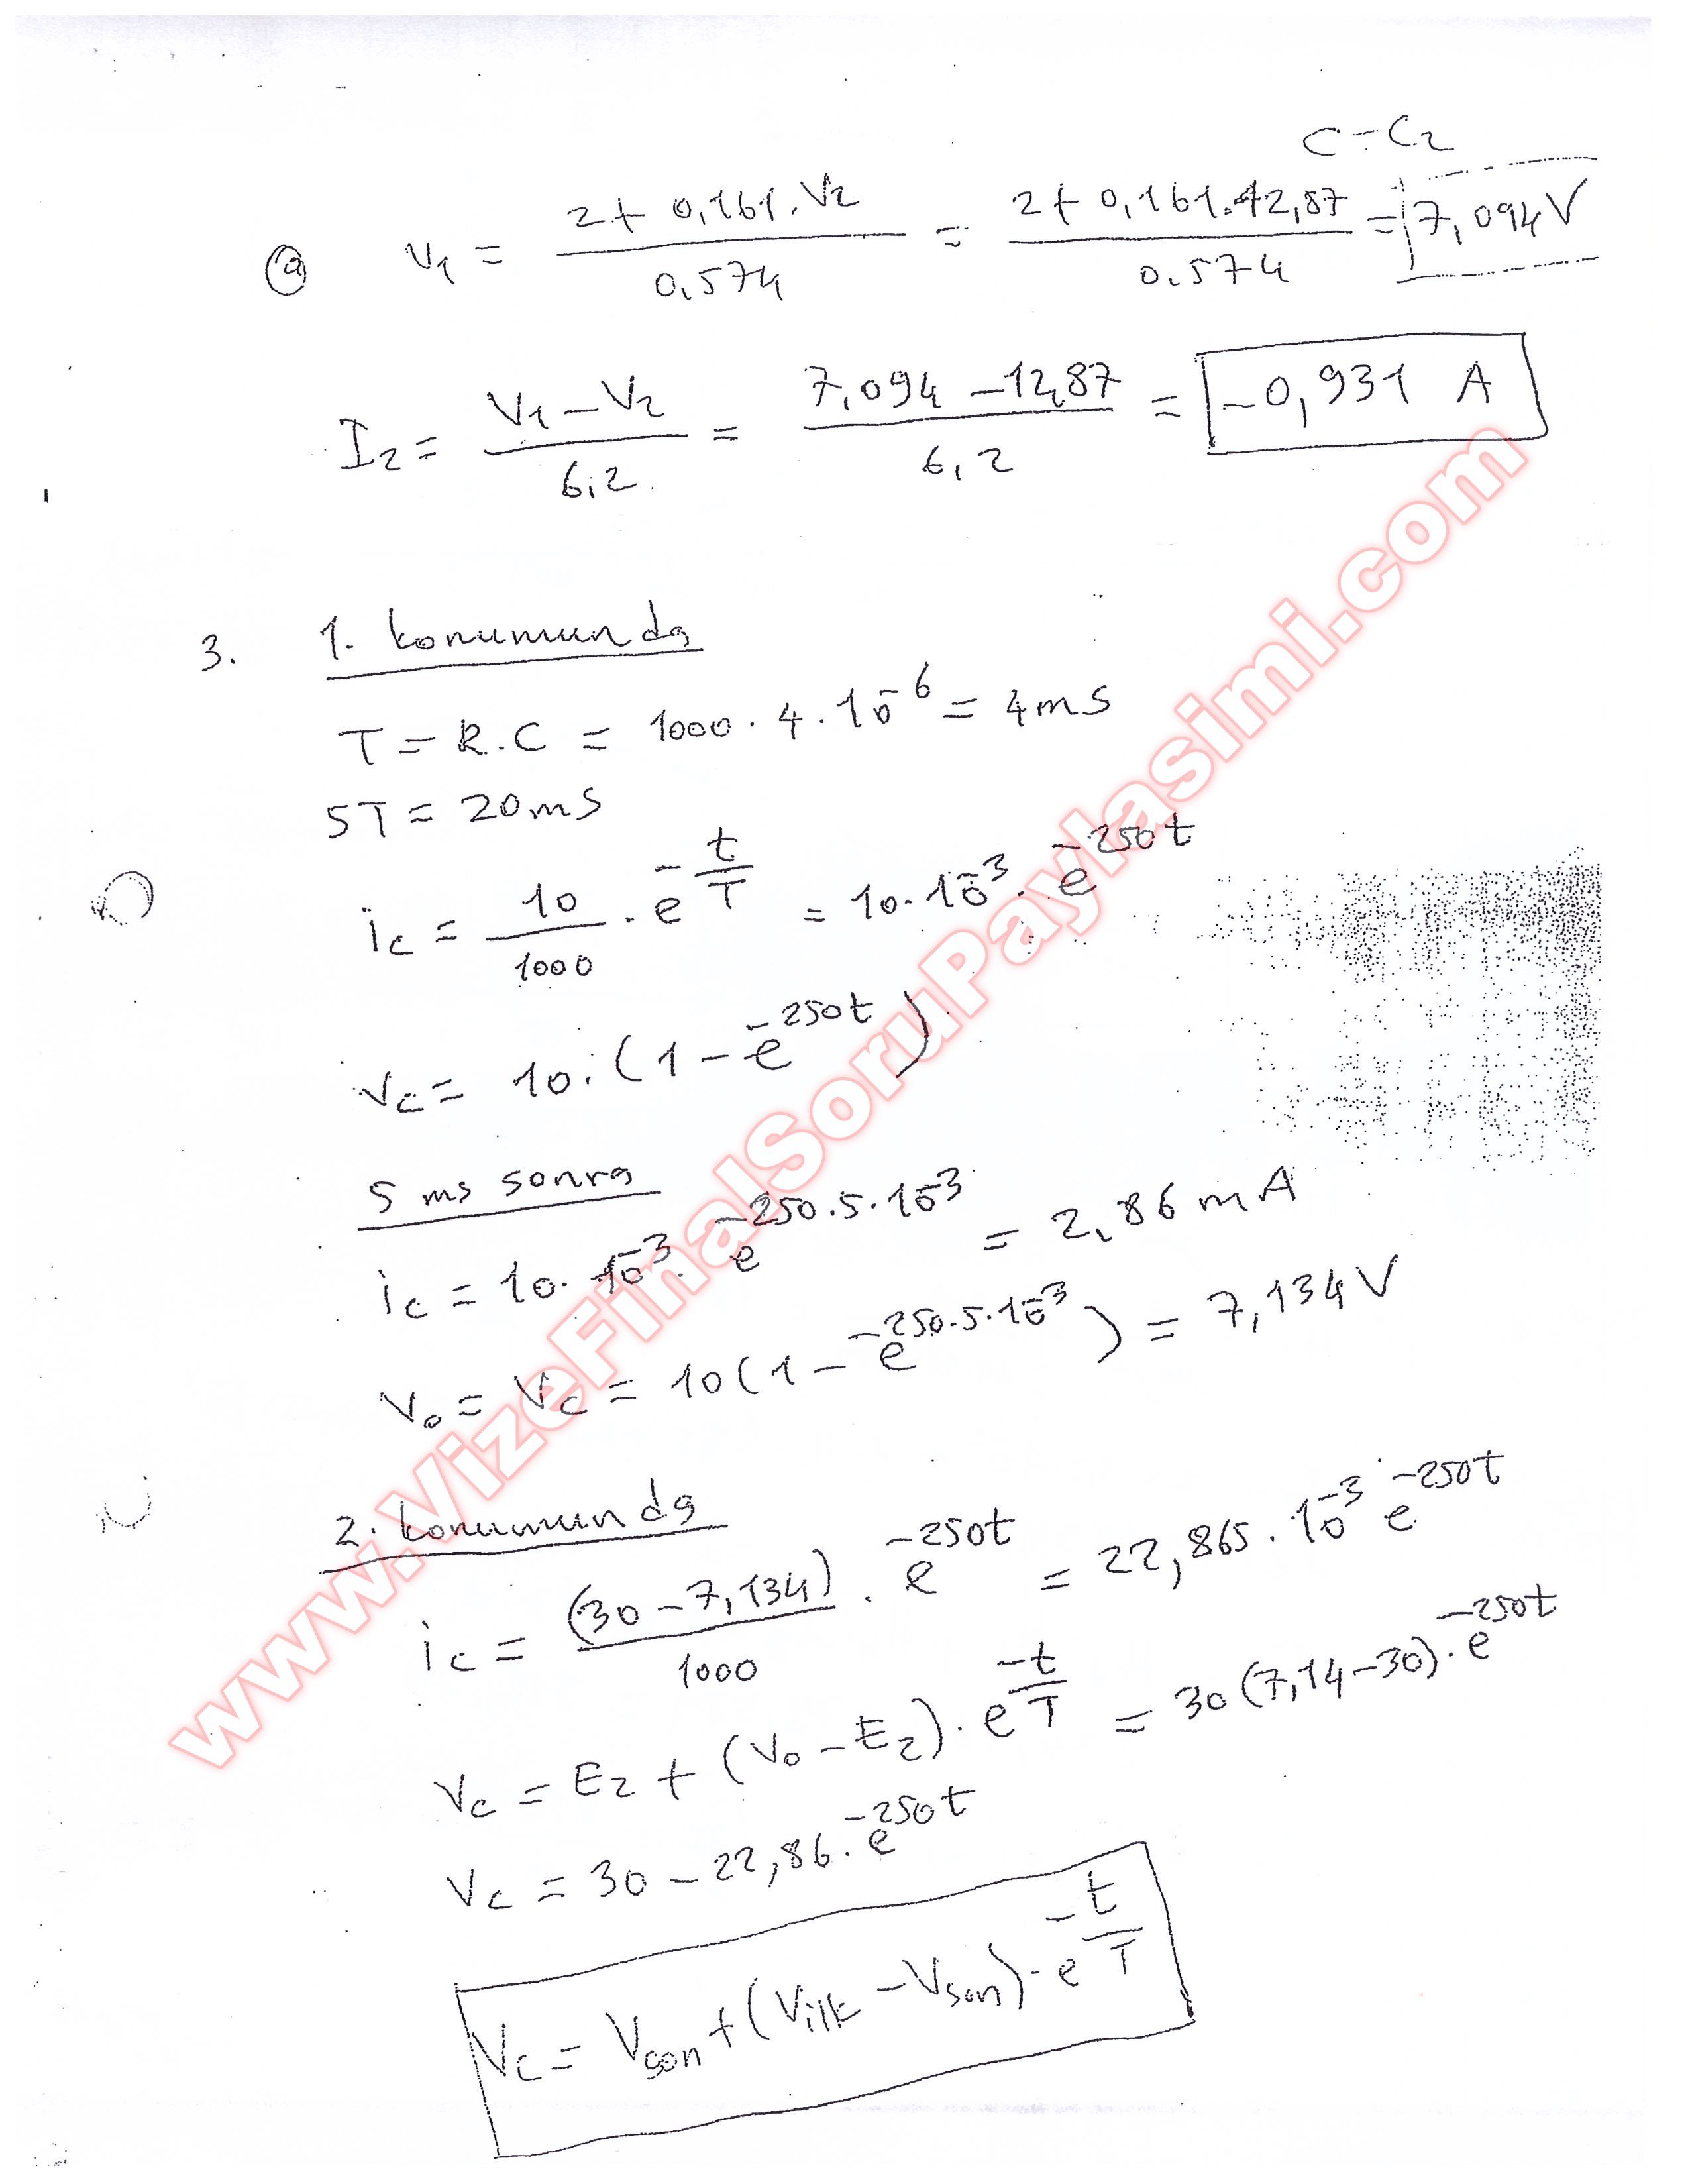 C-C2
(a) V1 = (2 + 0,161.V2) / 0,574 = (2 + 0,161.12,87) / 0.574 = 7,094V
I2 = (V1 - V2) / 6,2 = (7,094 - 12,87) / 6,2 = -0,931 A
3. 1. konumunda
T = R.C = 1000 . 4 . 10^-6 = 4ms
5T = 20ms
ic = 10/1000 . e^(-t/T) = 10.10^-3 . e^-250t
Vc = 10.(1 - e^-250t)
5 ms sonra
ic = 10. 10^-3 . e^(-250.5.10^-3) = 2,86 mA
Vo = Vc = 10(1 - e^(-250.5.10^-3)) = 7,134V
2. konumunda
ic = (30 - 7,134)/1000 . e^-250t = 22,865 . 10^-3 e^-250t
Vc = E2 + (Vo - E2) . e^(-t/T) = 30(7,14-30) . e^-250t
Vc = 30 - 22,86 . e^-250t
Vc = Vson + (Vilk - Vson) . e^(-t/T)
www.VizeFinalSoruPaylasimi.com